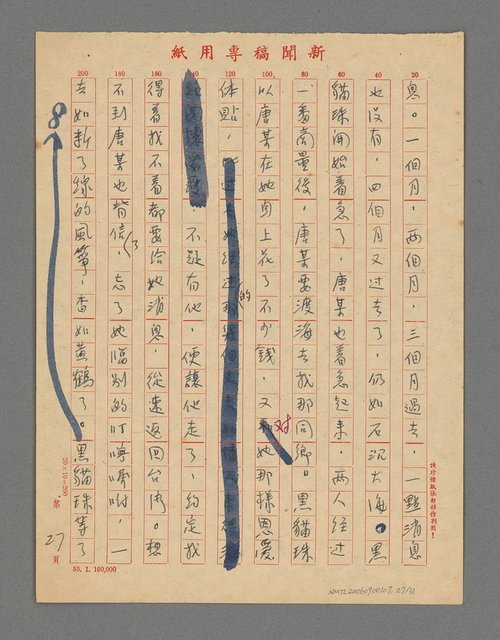 新聞稿專用紙
20
40
60
80
100
120
160
180
200
息。一個月，兩個月，三個月過去，一點消息
也沒有，四個月又過去了，仍如石沉大海。黑
貓珠開始着急了，唐某也着急起來。兩人經過
一番商量後，唐某要渡海去找那同鄉。黑貓珠
以唐某在她身上花了不少錢，又對她那樣恩愛
体貼，
的
不疑有他，便讓他走了，約定找
得着找不着都要給她消息，從速返回台灣。想
不到唐某也背信了，忘了她臨別的叮嚀囑咐，一
去如斷了線的風箏，杳如黃鶴了。黑貓珠等了
8
請珍惜紙張勿移作別用！
20×10=200
第27頁
55. 1. 100,000
NMTL20060900107, 27/31